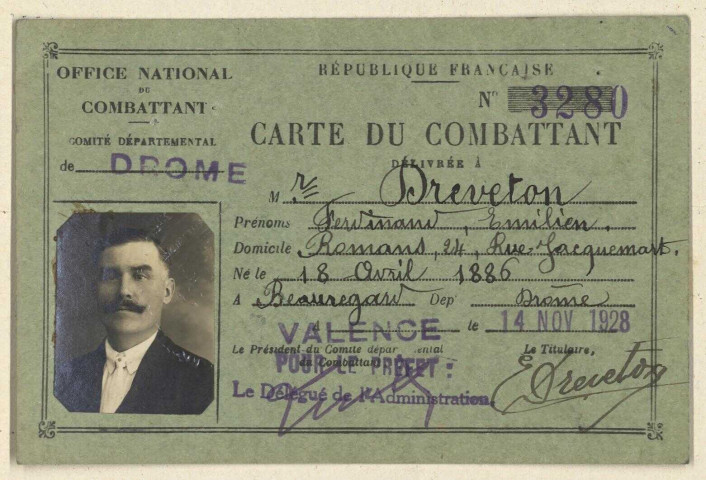 OFFICE NATIONAL
DU
COMBATTANT
COMITÉ DÉPARTEMENTAL
de DROME
RÉPUBLIQUE FRANÇAISE
N° 3280
CARTE DU COMBATTANT
DÉLIVRÉE À
M r Dreveton
Prénoms Ferdinand, Emilien.
Domicile Romans, 24, Rue Jacquemart.
Né le 18 Avril 1886
A Beauregard Dep' Drôme
VALENCE le 14 NOV 1928
Le Président du Comité départemental
du Combattant
POUR LE PRÉFET :
Le Délégué de l'Administration.
Le Titulaire,
E Dreveton